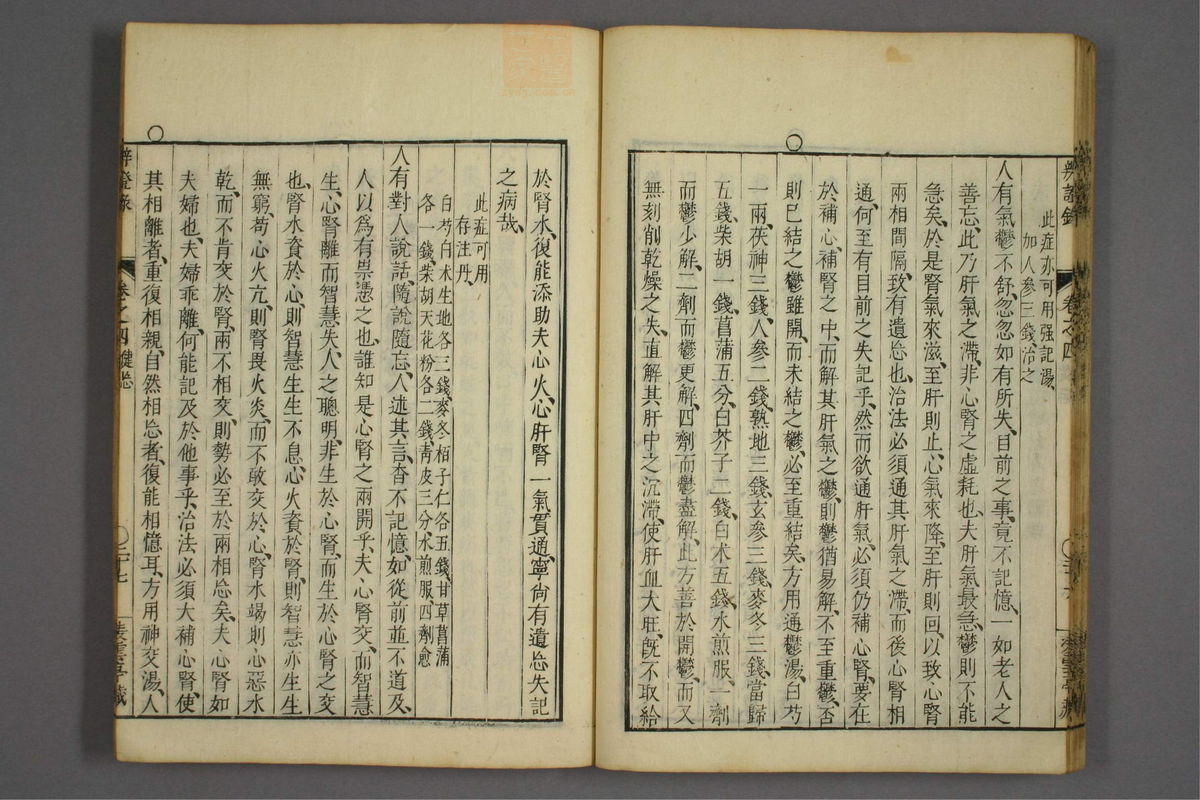 辨證錄 卷之四
此症亦可用强記湯
加人參三錢、治之
人有氣鬱不舒、忽忽如有所失、目前之事、竟不記憶、一如老人之
善忘、此乃肝氣之滯、非心腎之虛耗也、夫肝氣最急、鬱則不能
急矣、於是腎氣來滋、至肝則止、心氣來降、至肝則回、以致心腎
兩相間隔、致有遺忘也、治法必須通其肝氣之滯、而後心腎相
通、何至有目前之失記乎、然而欲通肝氣、必須仍補心腎、要在
於補心、補腎之中、而解其肝氣之鬱、則鬱猶易解、不至重鬱、否
則已結之鬱雖開、而未結之鬱、必至重結矣、方用通鬱湯、白芍
一兩、茯神三錢、人參二錢、熟地三錢、玄參三錢、麥冬三錢、當歸
五錢、柴胡一錢、菖蒲五分、白芥子二錢、白术五錢、水煎服、一劑
而鬱少解、二劑而鬱更解、四劑而鬱盡解、此方善於開鬱、而又
無刻削乾燥之失、直解其肝中之沉滯、使肝血大旺、旣不取給
於腎水、復能添助夫心火、心肝腎一氣貫通、寧尙有遺忘失記
之病哉、
此症可用
存注丹、
白芍白术生地各三錢、麥冬栢子仁各五錢、甘草菖蒲
各一錢、柴胡天花粉各二錢、靑皮三分、水煎服、四劑愈
人有對人說話、隨說隨忘、人述其言、杳不記憶、如從前並不道及、
人以爲有祟憑之也、誰知是心腎之兩開乎、夫心腎交、而智慧
生、心腎離而智慧失、人之聰明、非生於心腎、而生於心腎之交
也、腎水資於心、則智慧生生不息、心火資於腎、則智慧亦生生
無窮、苟心火亢、則腎畏火炎、而不敢交於心、腎水竭則心惡水
乾、而不肯交於腎、兩不相交、則勢必至於兩相忘矣、夫心腎如
夫婦也、夫婦乖離、何能記及於他事乎、治法必須大補心腎、使
其相離者、重復相親、自然相忘者、復能相憶耳、方用神交湯、人
辨證錄 卷之四 健忘 二十七